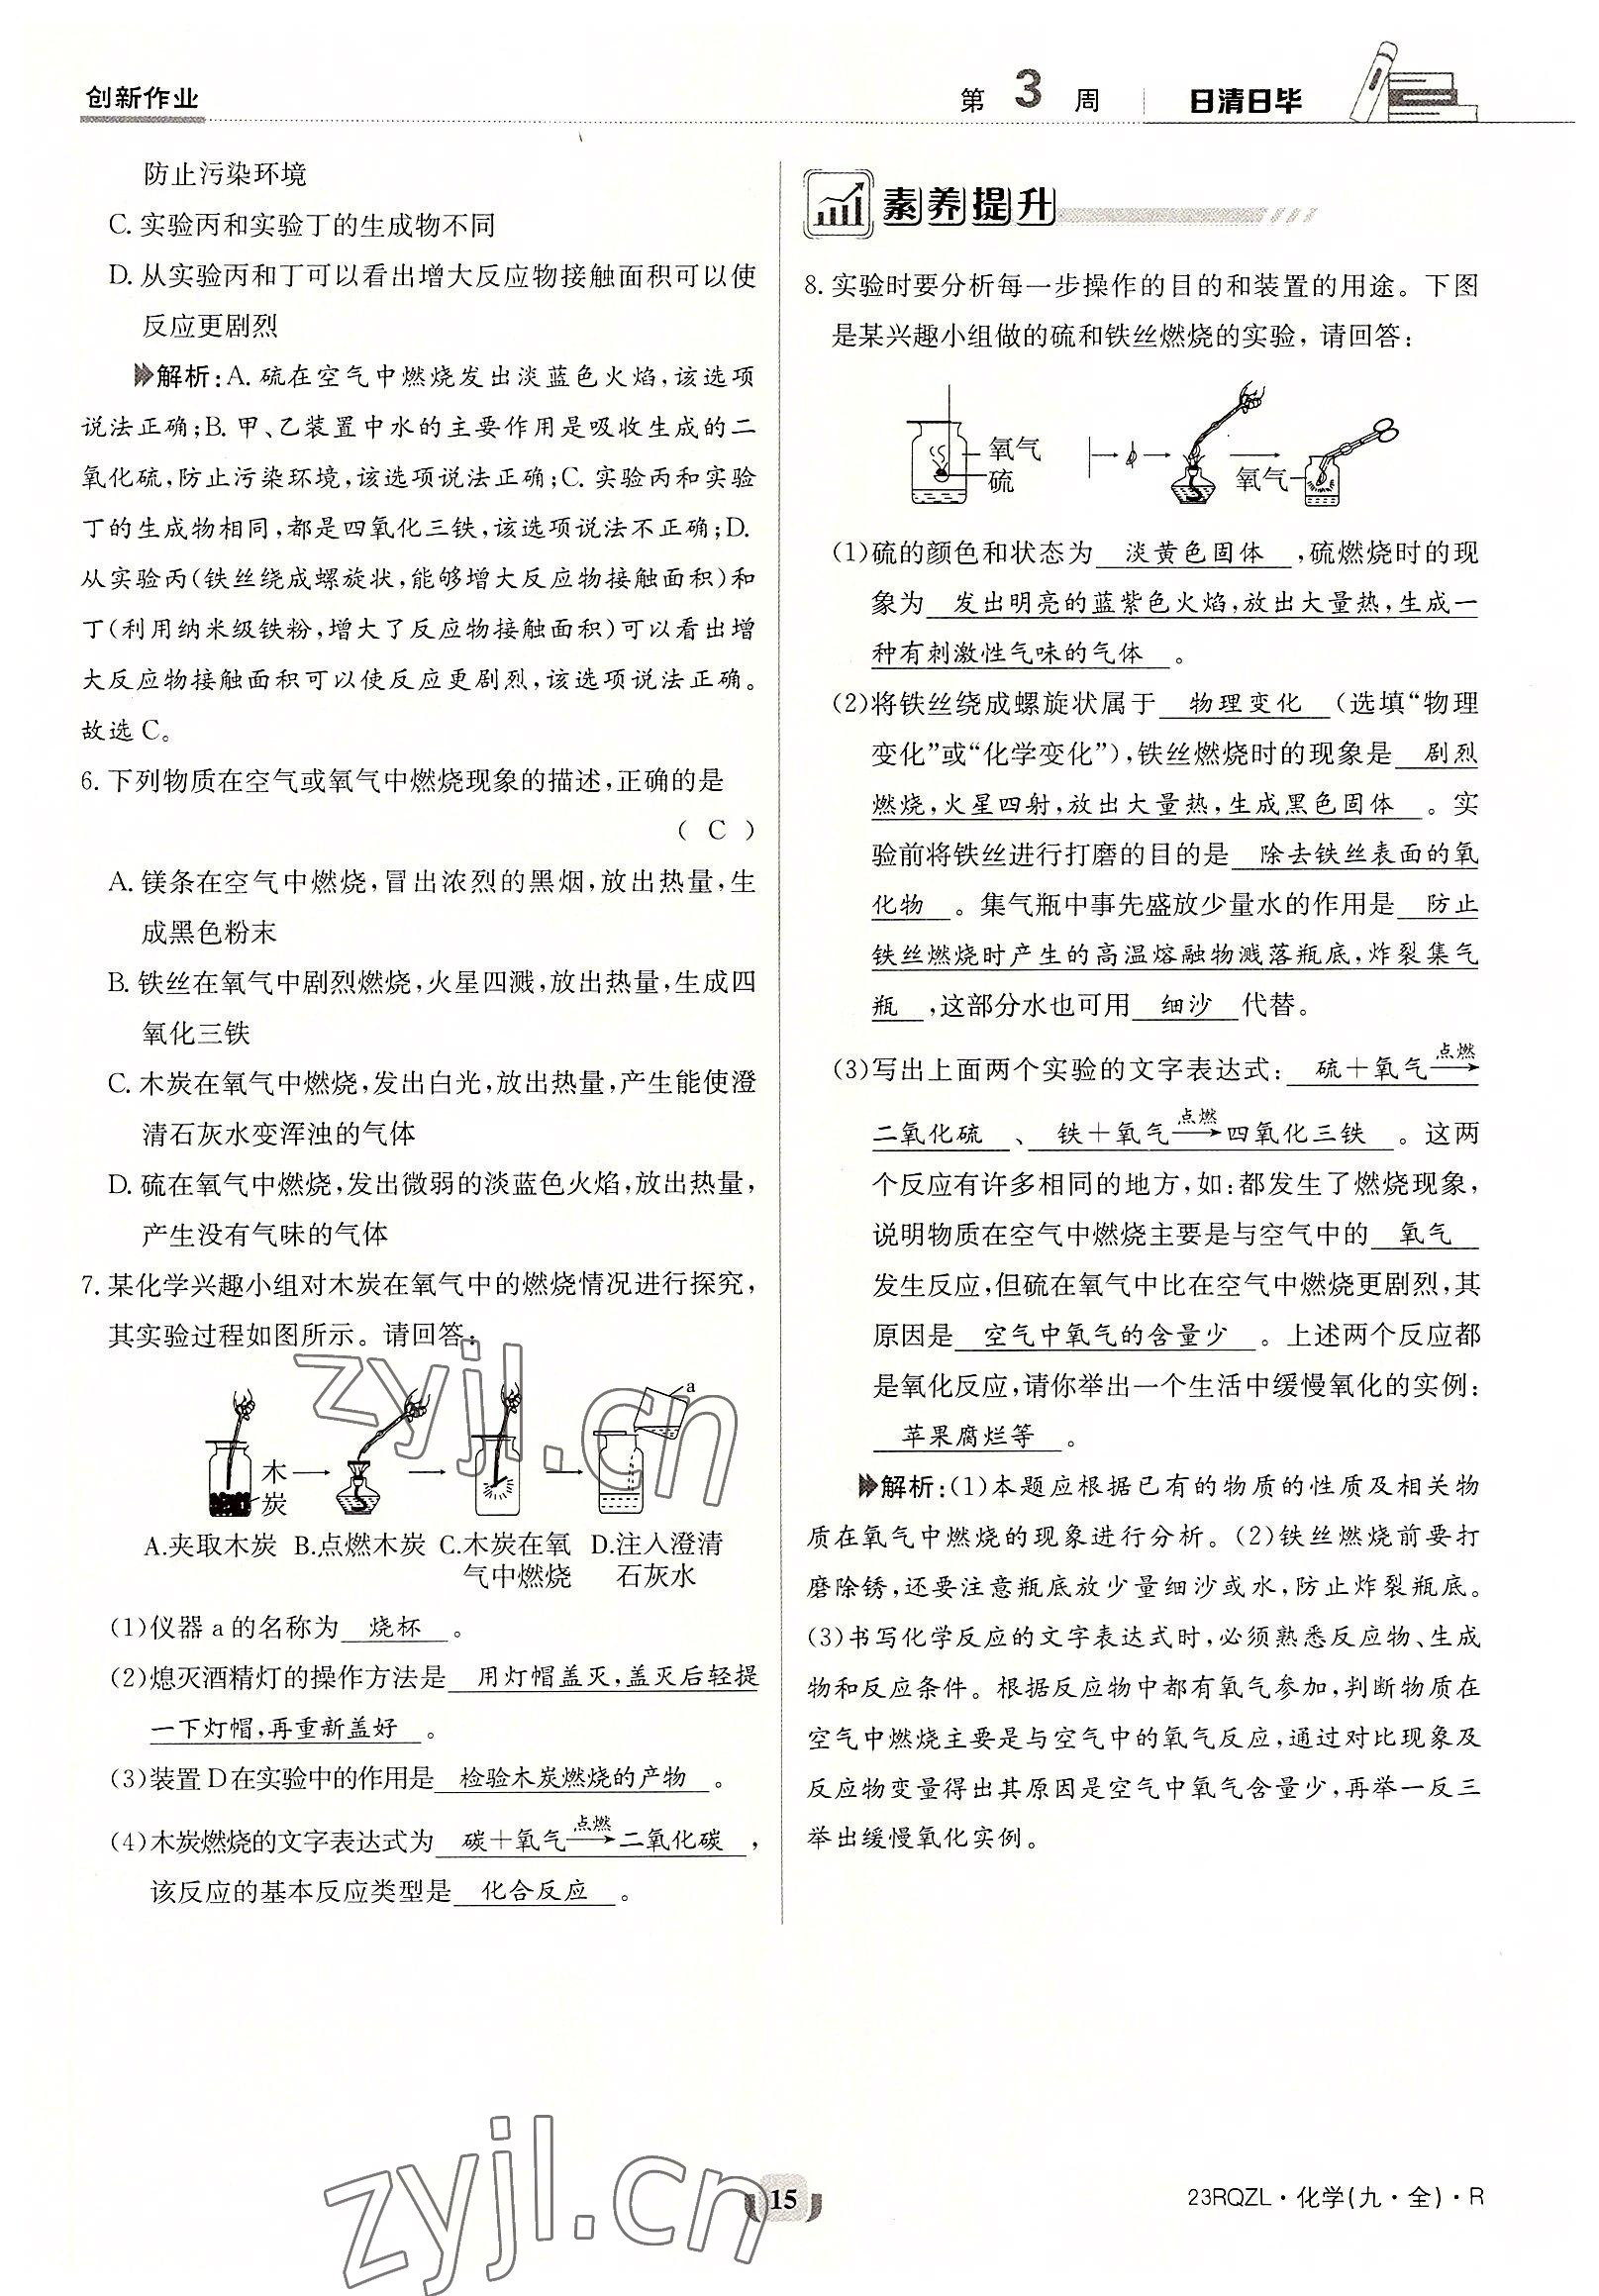 创新作业
第 3 周 日清日毕
防止污染环境
C. 实验丙和实验丁的生成物不同
D. 从实验丙和丁可以看出增大反应物接触面积可以使
反应更剧烈
解析:A. 硫在空气中燃烧发出淡蓝色火焰,该选项
说法正确;B. 甲、乙装置中水的主要作用是吸收生成的二
氧化硫,防止污染环境,该选项说法正确;C. 实验丙和实验
丁的生成物相同,都是四氧化三铁,该选项说法不正确;D.
从实验丙(铁丝绕成螺旋状,能够增大反应物接触面积)和
丁(利用纳米级铁粉,增大了反应物接触面积)可以看出增
大反应物接触面积可以使反应更剧烈,该选项说法正确。
故选 C。
6. 下列物质在空气或氧气中燃烧现象的描述,正确的是
( C )
A. 镁条在空气中燃烧,冒出浓烈的黑烟,放出热量,生
成黑色粉末
B. 铁丝在氧气中剧烈燃烧,火星四溅,放出热量,生成四
氧化三铁
C. 木炭在氧气中燃烧,发出白光,放出热量,产生能使澄
清石灰水变浑浊的气体
D. 硫在氧气中燃烧,发出微弱的淡蓝色火焰,放出热量,
产生没有气味的气体
7. 某化学兴趣小组对木炭在氧气中的燃烧情况进行探究,
其实验过程如图所示。请回答:
a
木
炭
A.夹取木炭 B.点燃木炭 C.木炭在氧 D.注入澄清
气中燃烧 石灰水
(1)仪器 a 的名称为 烧杯 。
(2)熄灭酒精灯的操作方法是 用灯帽盖灭,盖灭后轻提
一下灯帽,再重新盖好 。
(3)装置 D 在实验中的作用是 检验木炭燃烧的产物 。
(4)木炭燃烧的文字表达式为 碳+氧气 点燃→ 二氧化碳 ,
该反应的基本反应类型是 化合反应 。
素养提升
8. 实验时要分析每一步操作的目的和装置的用途。下图
是某兴趣小组做的硫和铁丝燃烧的实验,请回答:
氧气
硫
氧气
(1)硫的颜色和状态为 淡黄色固体 ,硫燃烧时的现
象为 发出明亮的蓝紫色火焰,放出大量热,生成一
种有刺激性气味的气体 。
(2)将铁丝绕成螺旋状属于 物理变化 (选填“物理
变化”或“化学变化”),铁丝燃烧时的现象是 剧烈
燃烧,火星四射,放出大量热,生成黑色固体 。实
验前将铁丝进行打磨的目的是 除去铁丝表面的氧
化物 。集气瓶中事先盛放少量水的作用是 防止
铁丝燃烧时产生的高温熔融物溅落瓶底,炸裂集气
瓶 ,这部分水也可用 细沙 代替。
(3)写出上面两个实验的文字表达式: 硫+氧气 点燃→
二氧化硫 、 铁+氧气 点燃→ 四氧化三铁 。这两
个反应有许多相同的地方,如:都发生了燃烧现象,
说明物质在空气中燃烧主要是与空气中的 氧气
发生反应,但硫在氧气中比在空气中燃烧更剧烈,其
原因是 空气中氧气的含量少 。上述两个反应都
是氧化反应,请你举出一个生活中缓慢氧化的实例:
苹果腐烂等 。
解析:(1)本题应根据已有的物质的性质及相关物
质在氧气中燃烧的现象进行分析。(2)铁丝燃烧前要打
磨除锈,还要注意瓶底放少量细沙或水,防止炸裂瓶底。
(3)书写化学反应的文字表达式时,必须熟悉反应物、生成
物和反应条件。根据反应物中都有氧气参加,判断物质在
空气中燃烧主要是与空气中的氧气反应,通过对比现象及
反应物变量得出其原因是空气中氧气含量少,再举一反三
举出缓慢氧化实例。
zyjl.cn
zyjl.cn
15
23RQZL·化学(九·全)·R